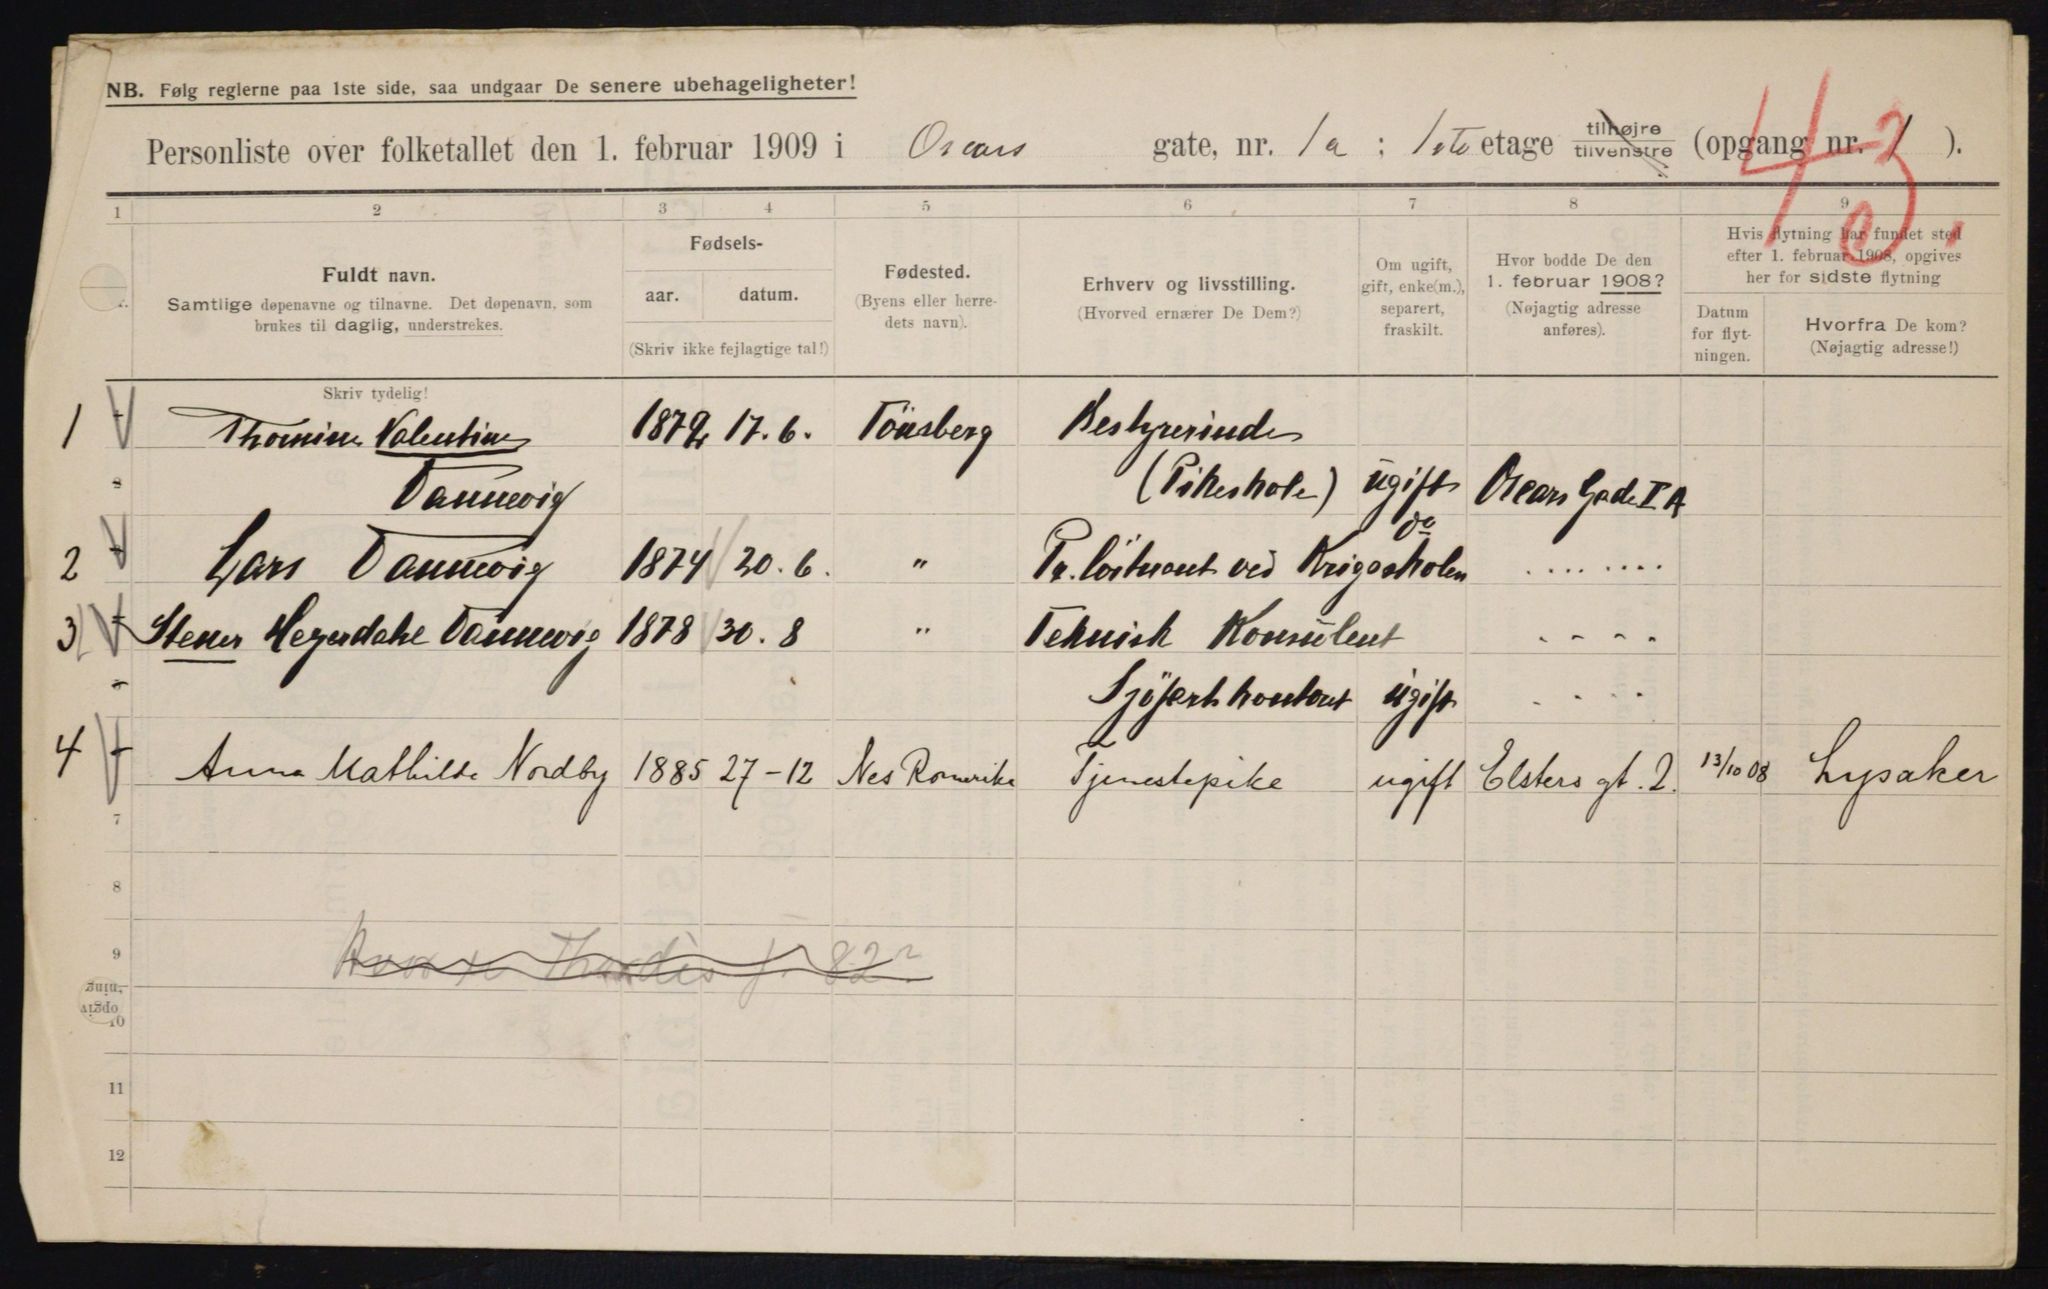 NB. Følg reglerne paa 1ste side, saa undgaar De senere ubehageligheter!
Personliste over folketallet den 1. februar 1909 i Oscars gate, nr. 1a ; 1ste etage tilhøjre tilvenstre (opgang nr. 1 ).
1 2 3 4 5 6 7 8 9
Fuldt navn.
Samtlige døpenavne og tilnavne. Det døpenavn, som
brukes til daglig, understrekes.
Fødsels-
aar. datum.
(Skriv ikke fejlagtige tal!)
Fødested.
(Byens eller herre-
dets navn).
Erhverv og livsstilling.
(Hvorved ernærer De Dem?)
Om ugift,
gift, enke(m.),
separert,
fraskilt.
Hvor bodde De den
1. februar 1908?
(Nøjagtig adresse
anføres).
Hvis flytning har fundet sted
efter 1. februar 1908, opgives
her for sidste flytning
Datum
for flyt-
ningen.
Hvorfra De kom?
(Nøjagtig adresse!)
Skriv tydelig!
1 Thomine Valentine 1872 17. 6. Tönsberg Bestyrerinde
Dannevig (Pikeskole) ugift Oscars Gade I A
2 Lars Dannevig 1874 20. 6. " Pr. löitnant ved Krigsskolen do ........
3 Stener Heyerdahl Dannevig 1878 30. 8 " Teknisk Konsulent - - - -
Sjöfartskontoret ugift - - -
4 Anna Mathilde Nordby 1885 27-12 Nes Romerike Tjenestepike ugift Elsters gt. 2. 13/10 08 Lysaker
7
8
9 Thordis f. 82?
10
11
12